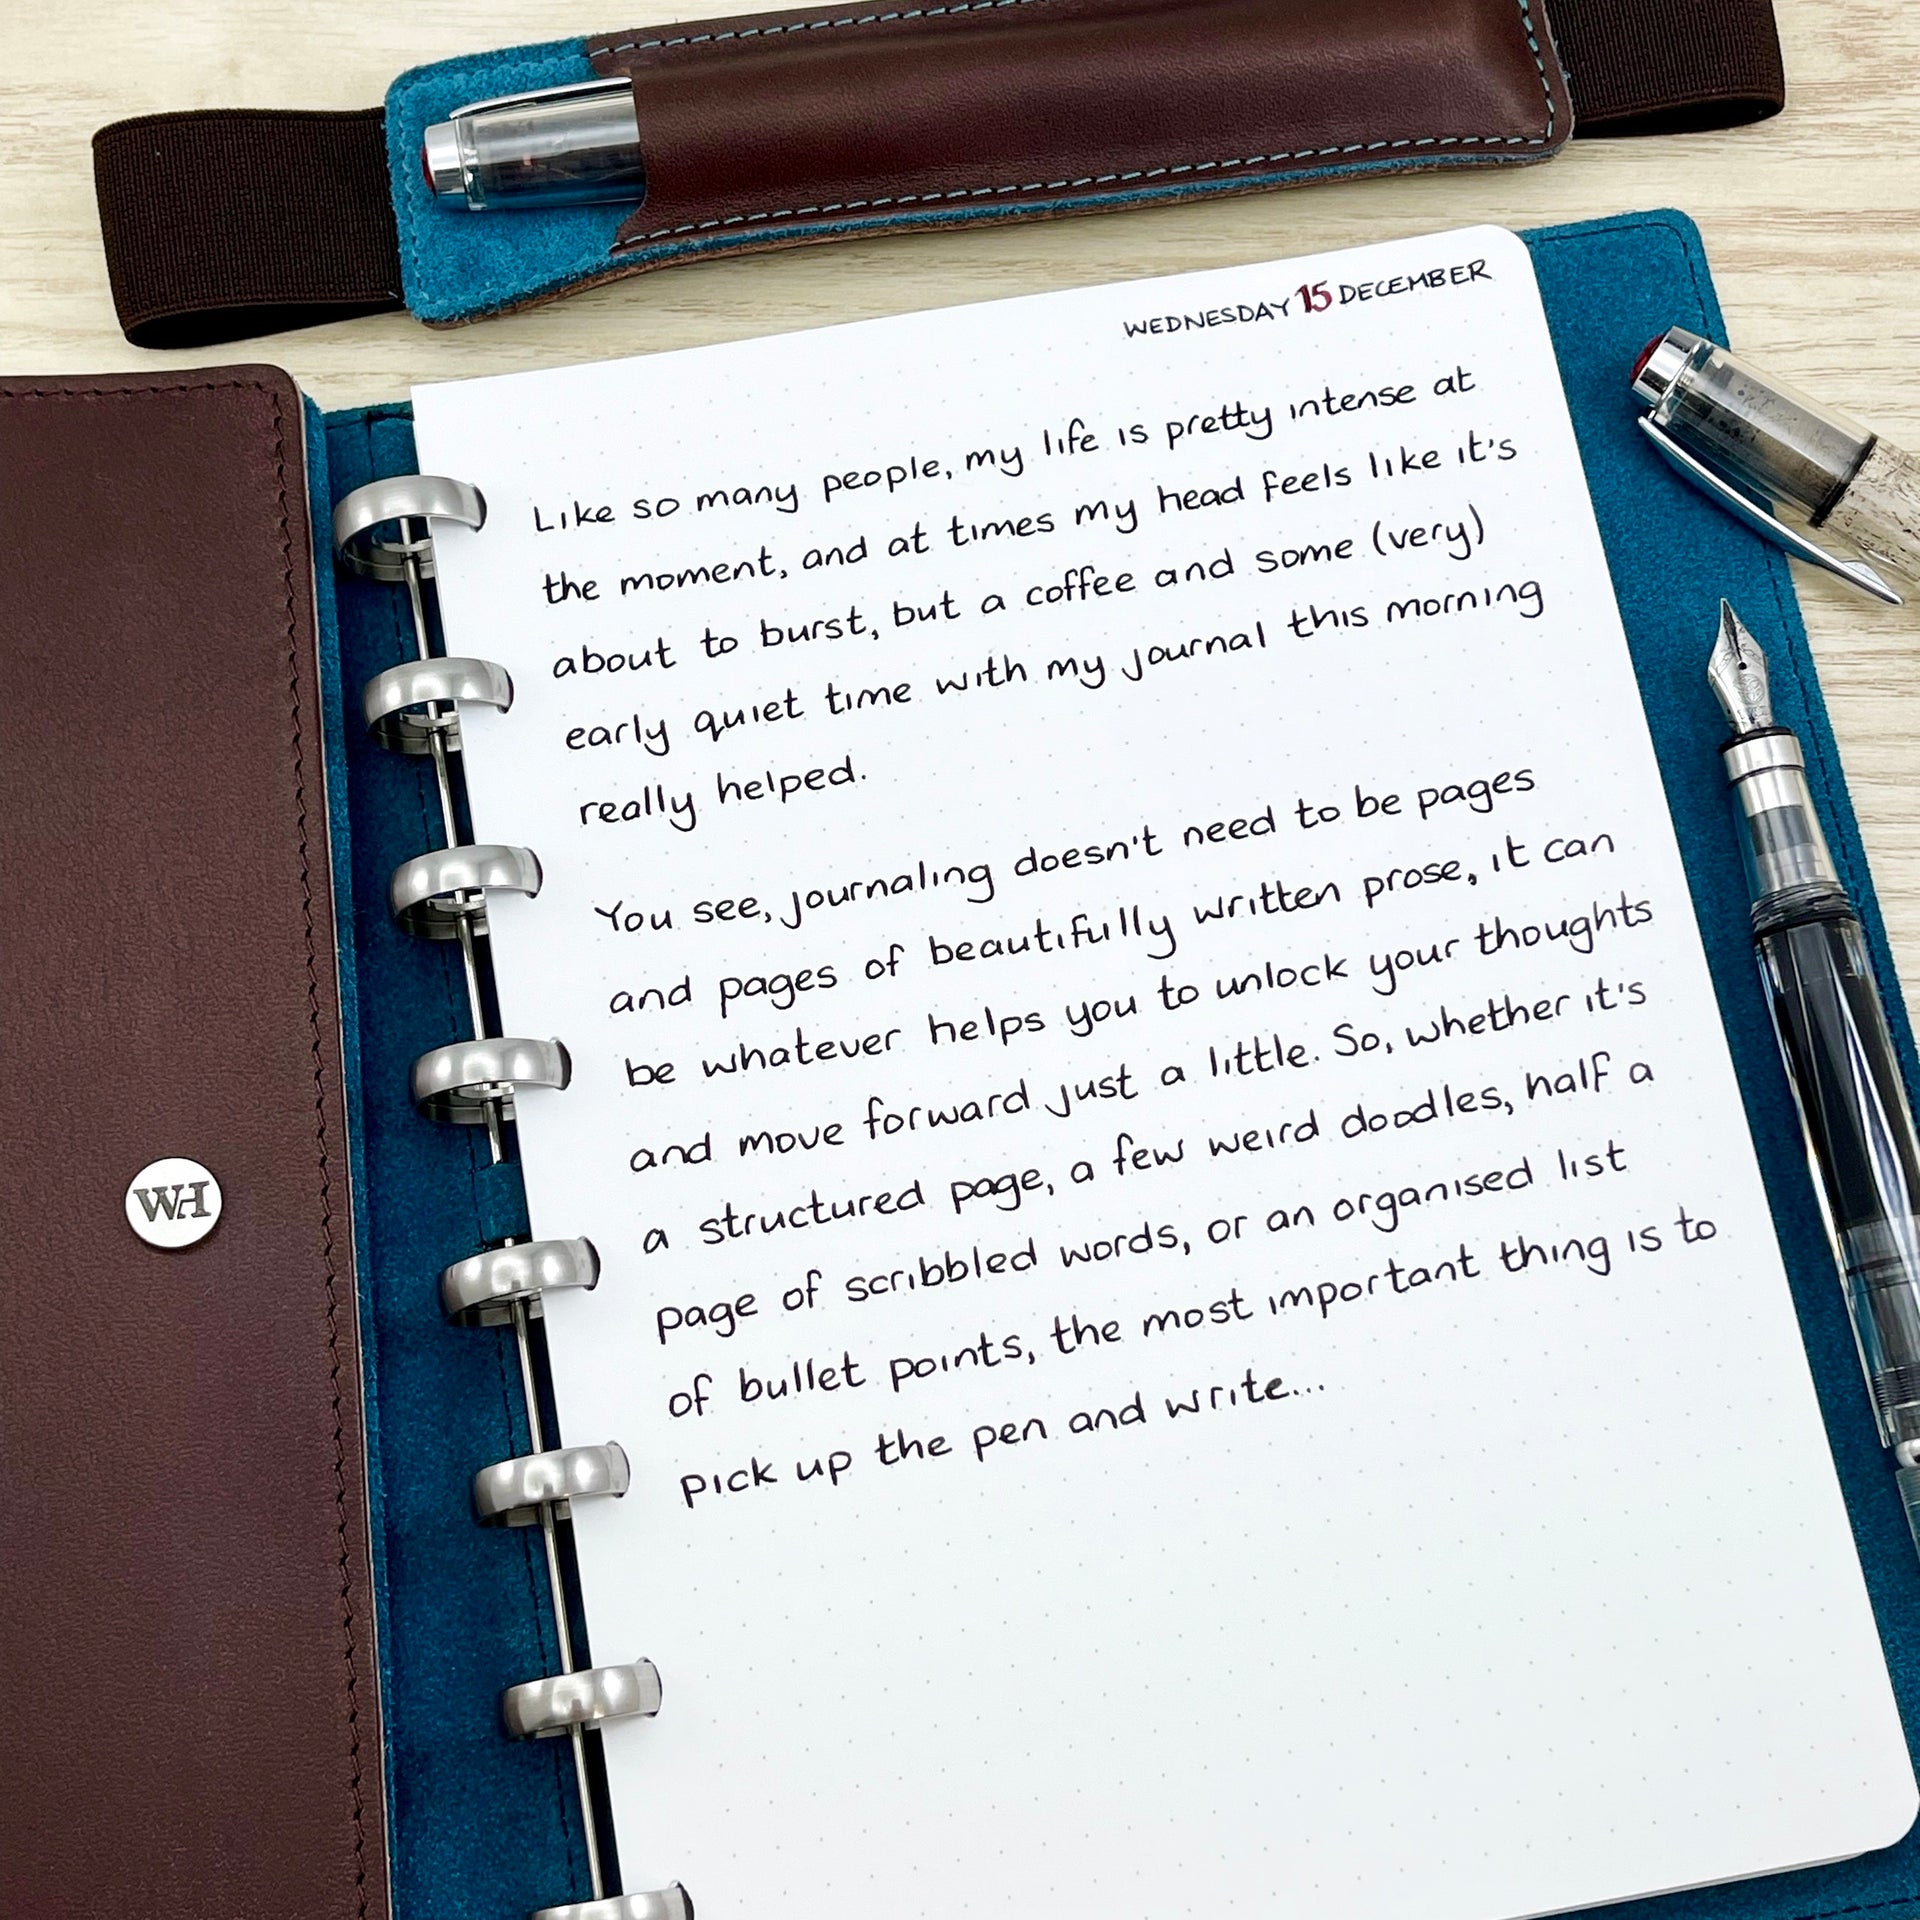 WEDNESDAY 15 DECEMBER
Like so many people, my life is pretty intense at
the moment, and at times my head feels like it's
about to burst, but a coffee and some (very)
early quiet time with my journal this morning
really helped.
You see, journaling doesn't need to be pages
and pages of beautifully written prose, it can
be whatever helps you to unlock your thoughts
and move forward just a little. So, whether it's
a structured page, a few weird doodles, half a
page of scribbled words, or an organised list
of bullet points, the most important thing is to
pick up the pen and write...
WH